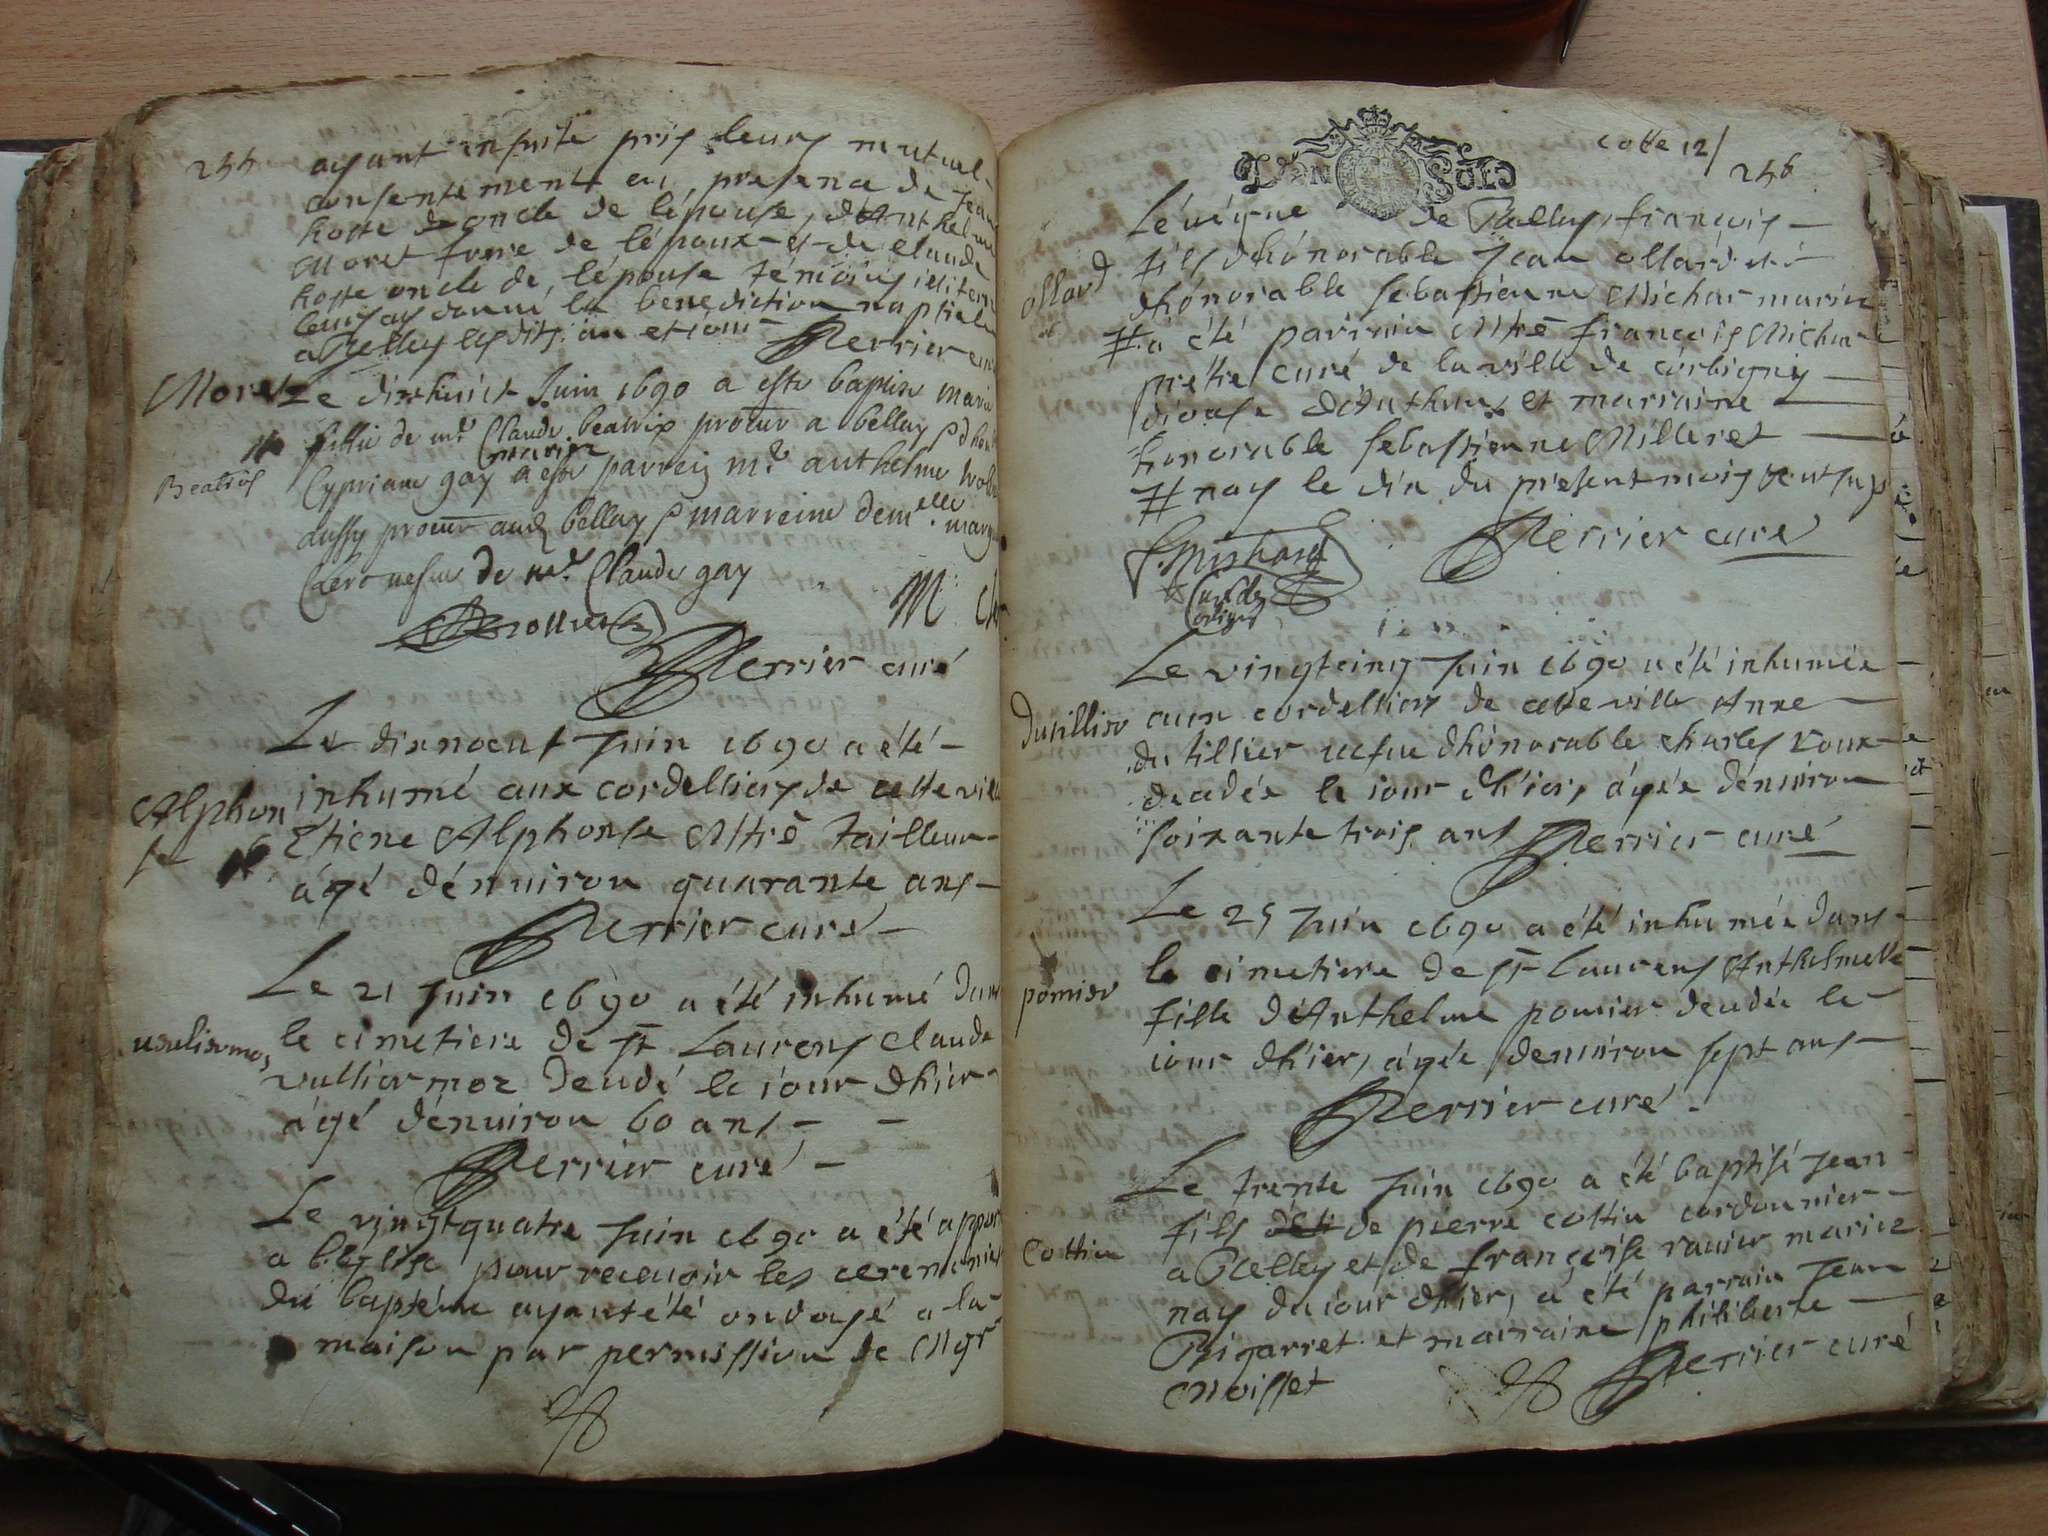 255
ayant ensuite pris leurs mutuel
consentement en presence de Jean
hoste oncle de l'épouse, d'Anthelme
Moret frere de l'époux et de claude
hoste oncle de l'épouse témoins
leurs ay donné la benediction nuptiale
a Belley lesdits an et jour Perrier curé
Moret
Le dixhuict Juin 1690 a esté baptisé marie
fillie de mr. Claude beatrix procur a bellay & d'hon
mariez
Cypriane gay a esté parrein mr. anthelme
dussy procur aud bellay & marreine demelle. marg
Clerc vefue de mr. Claude gay
Beatrix
M
Perrier curé
Le dixneuf Juin 1690 a été
inhumé aux cordelliers de cette ville
Alphon
se
Etiene Alphonse Mtrē tailleur
ágé dénuiron quarante ans
Perrier curé
Le 21 Juin 1690 a été inhumé dans
le cimetiere de st Laurens claude
uuliermoz
vulliermoz decedé le iour dhier
ágé dénuiron 60 ans
Perrier curé
Le vingtquatre Juin 1690 a été appor
a l'Eglise pour receuoir les ceremonies
du baptéme ayant été ondoyé a la
maison par permission de Mgr
cotte 12/
256
L'éuéque de Belley, françois
ollard
fils dhónorable Jean ollard et
dhónorable sebastienne Michar mariez
# a été parrain Mtrē françois Michar
prétre curé de la ville de corbigny
diocese d'Authun et marraine
honorable sebastienne Milleret
# nay le dix du present mois
F. Michard
Curé de
Corbigny
Perrier curé
Le vingtcinq Juin 1690 a été inhumée
dutillier
aux cordelliers de cette ville Anne
du tillier uefue dhónorable charles Roux
decedée le iour dhier, ágée dénuiron
soixante trois ans Perrier curé
Le 25 Juin 1690 a été inhumée dans
le cimetiere de st Laurens Anthelmette
pomier
fille d'Anthelme pomier decedée le
iour dhier, ágée denuiron sept ans
Perrier curé
Le trente Juin 1690 a été baptisé Jean
fils de pierre cottin cordonnier
Cottin
a Belley et de françoise rauier mariez
nay du iour dhier, a été parrain Jean
Bigarret et marraine philiberte
Moisset
Perrier curé